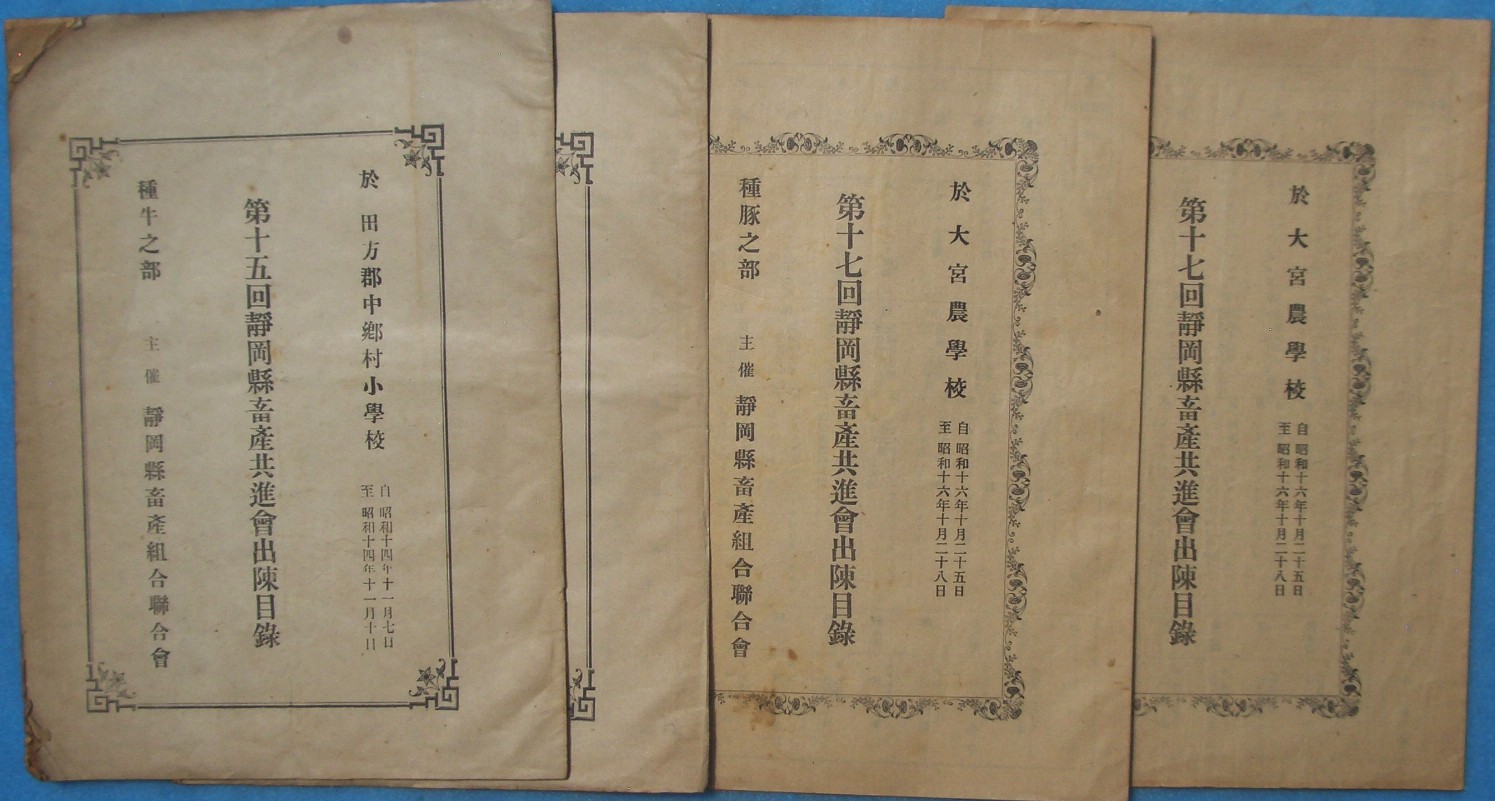 於 田方郡中鄕村小學校
自 昭和十四年十一月七日
至 昭和十四年十一月十日
第十五回靜岡縣畜產共進會出陳目錄
種牛之部 主催 靜岡縣畜產組合聯合會
於大宮農學校
自 昭和十六年十月二十五日
至 昭和十六年十月二十八日
第十七回靜岡縣畜產共進會出陳目錄
種豚之部 主催 靜岡縣畜產組合聯合會
於大宮農學校
自 昭和十六年十月二十五日
至 昭和十六年十月二十八日
第十七回靜岡縣畜產共進會出陳目錄